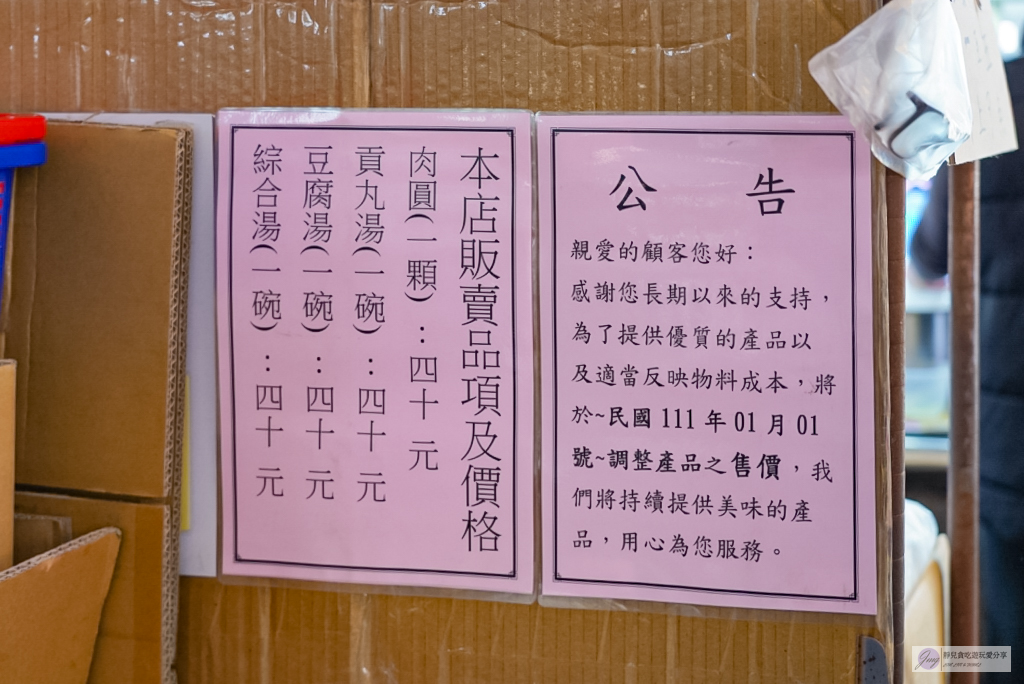 本店販賣品項及價格
肉圓(一顆)：四十 元
貢丸湯(一碗)：四十 元
豆腐湯(一碗)：四十 元
綜合湯(一碗)：四十 元
公 告
親愛的顧客您好：
感謝您長期以來的支持，
為了提供優質的產品以
及適當反映物料成本，將
於~民國 111 年 01 月 01
號~調整產品之售價，我
們將持續提供美味的產
品，用心為您服務。
靜兒貪吃遊玩愛分享